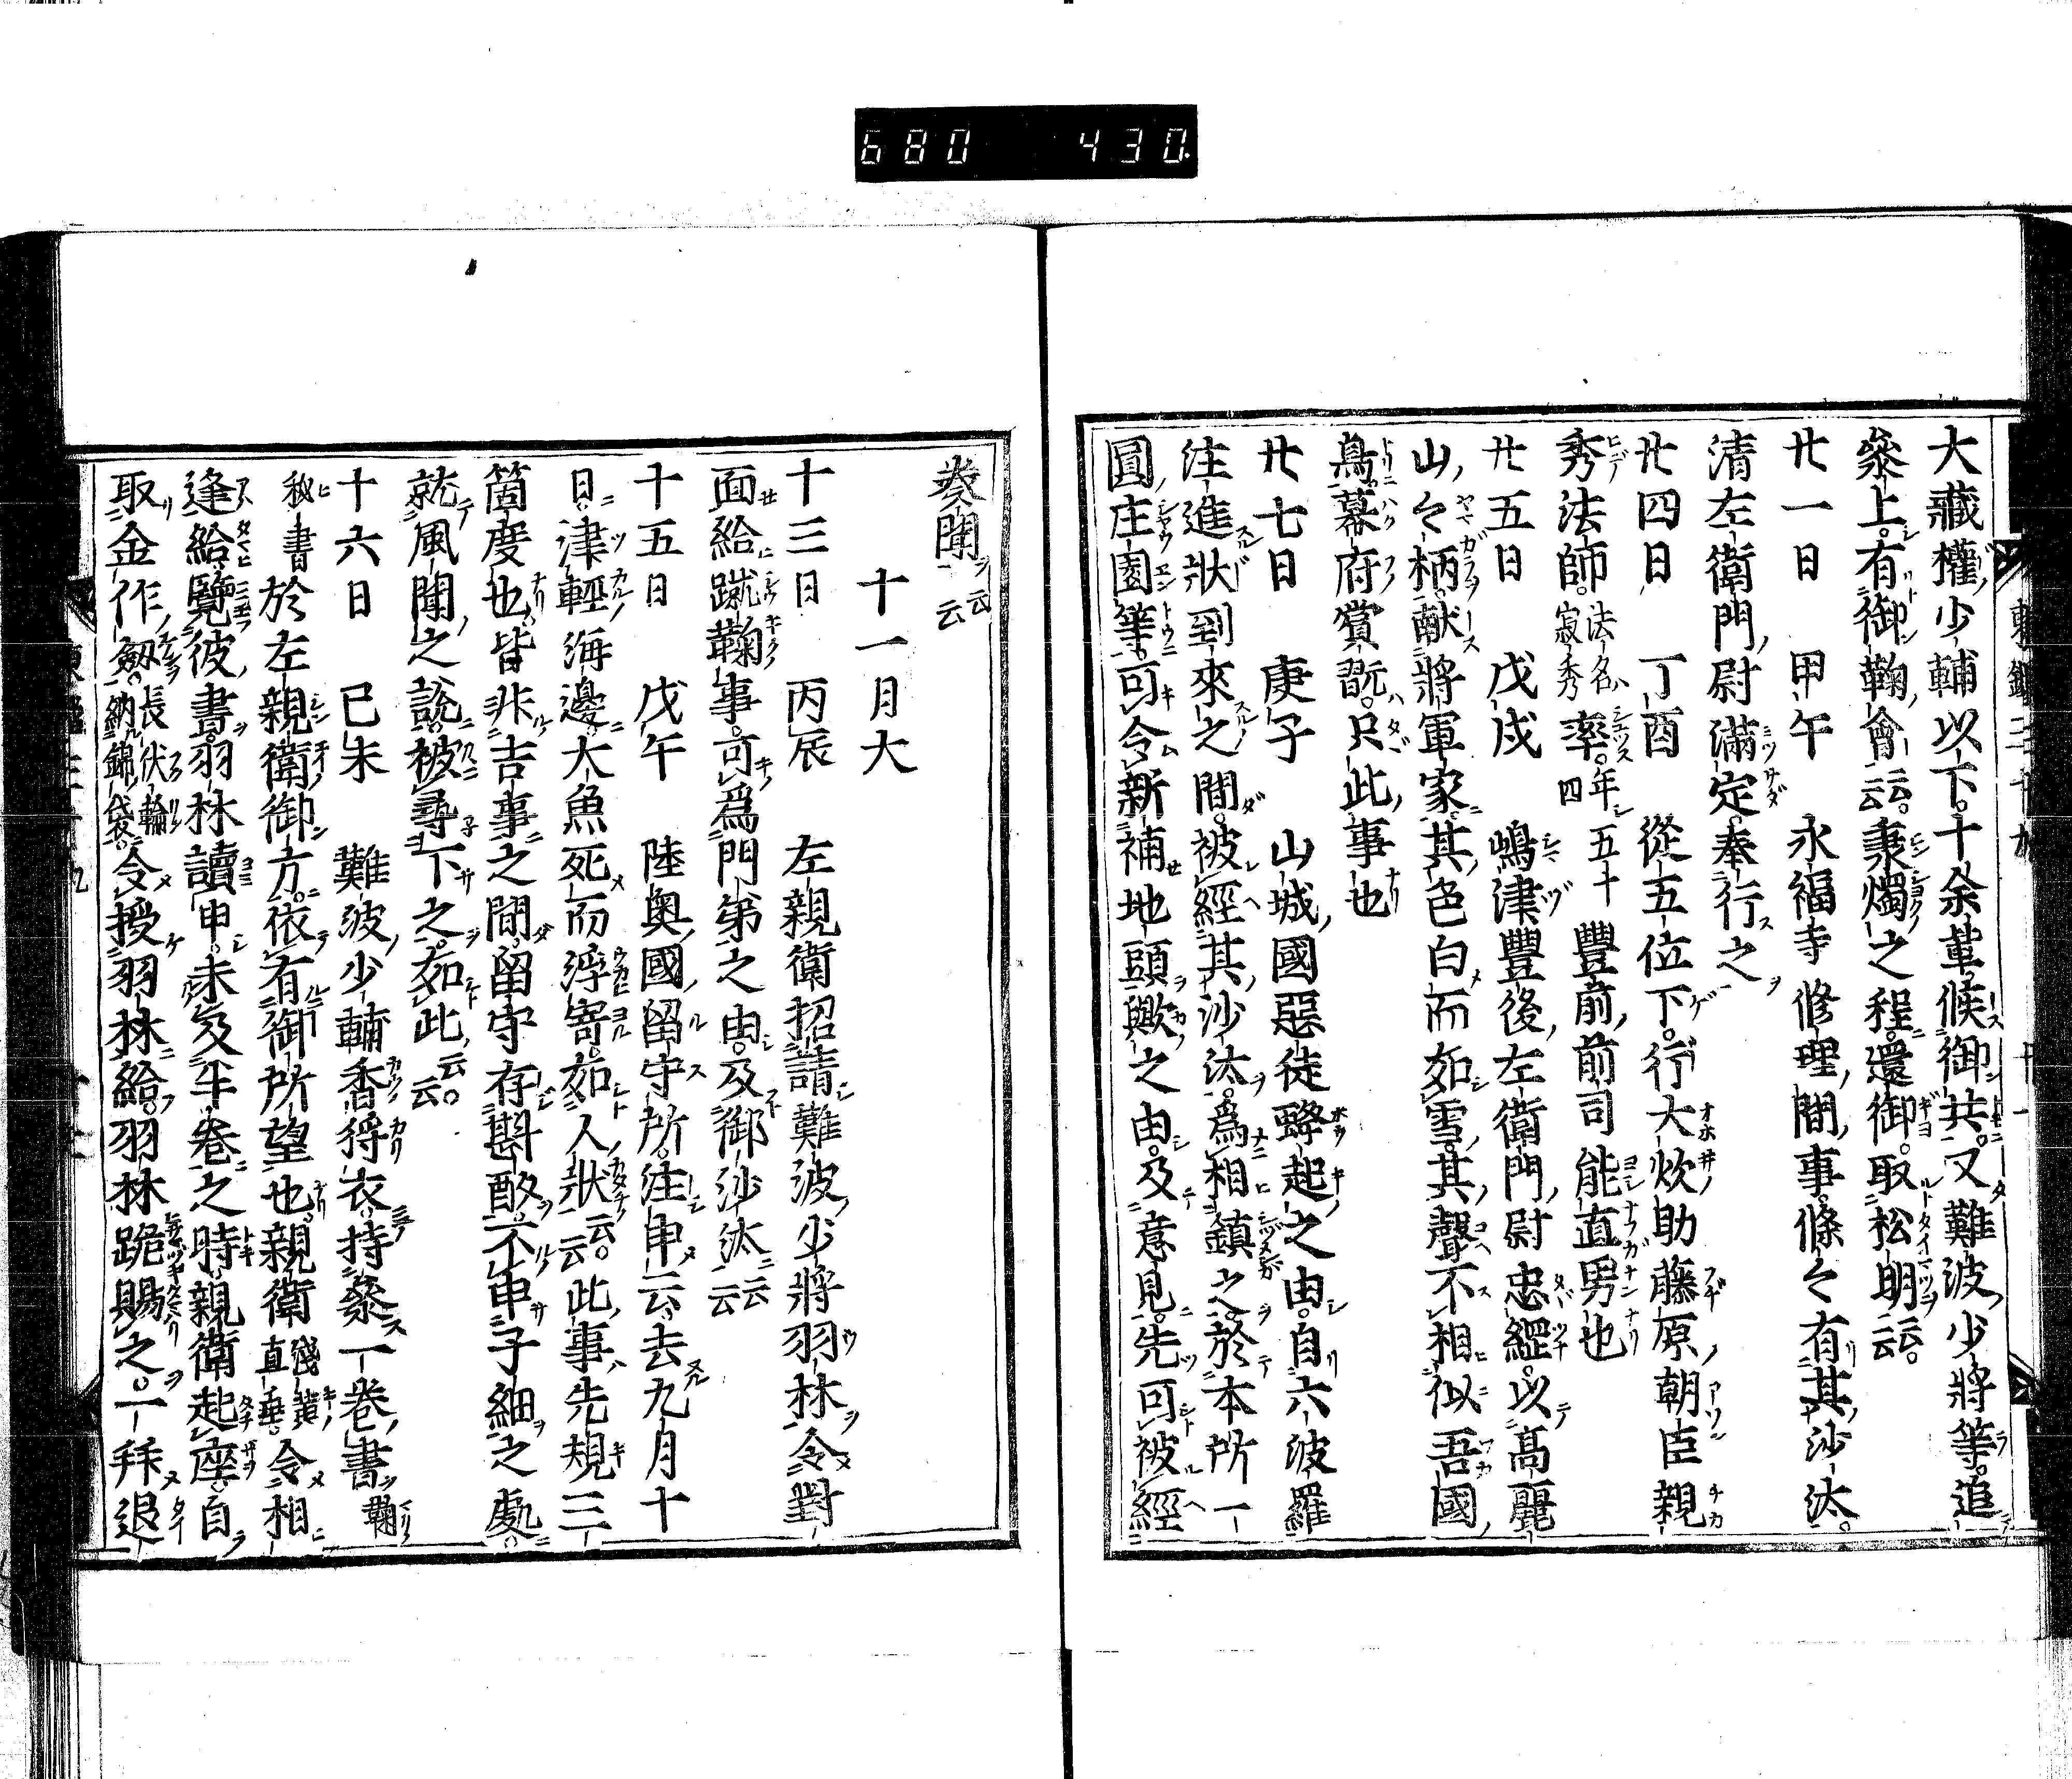 680 430
大藏權少輔以下十余輩候御共又難波少將等追
參上有御鞠會云云秉燭之程還御取松明云云
廿一日 甲午 永福寺修理間事條々有其沙汰
清左衛門尉滿定奉行之
廿四日 丁酉 從五位下行大炊助藤原朝臣親
秀法師法名寂秀卒年五十四豐前前司能直男也
廿五日 戊戌 嶋津豐後左衛門尉忠經以高麗
山々柄献將軍家其色白而如雪其聲不相似吾國
鳥幕府賞翫只此事也
廿七日 庚子 山城國惡徒蜂起之由自六波羅
注進狀到來之間被經其沙汰爲相鎮之於本所一
圓庄園等可令新補地頭歟之由及意見先可被經
奏聞云云
十一月大
十三日 丙辰 左親衛招請難波少將羽林令對
面給蹴鞠事可爲門弟之由及御沙汰云云
十五日 戊午 陸奧國留守所注申云去九月十
日津輕海邊大魚死而浮寄如人狀云云此事先規三
箇度也皆非吉事之間留守存斟酌不申子細之處
就風聞之說被尋下之如此云云
十六日 巳未 難波少輔香狩衣持參一卷書鞠
秘書於左親衛御方依有御所望也親衛淺黃直垂令相
逢給覽彼書羽林讀申未及半卷之時親衛起座自
取金作劔長伏輪納錦袋令授羽林給羽林跪賜之一拜退